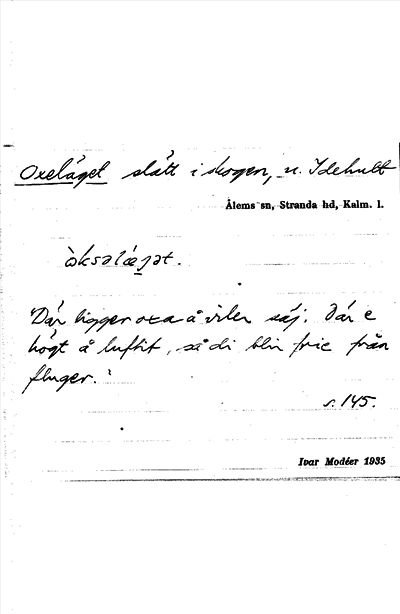 Oxeläget slätt i skogen, n. Idehult
Ålems sn, Stranda hd, Kalm. l.
òksəlæ̀jət.
"Där ligger oxa å viler säj. där e
högt å luftit, så di blir frie från
fluger."
s. 145.
Ivar Modéer 1935